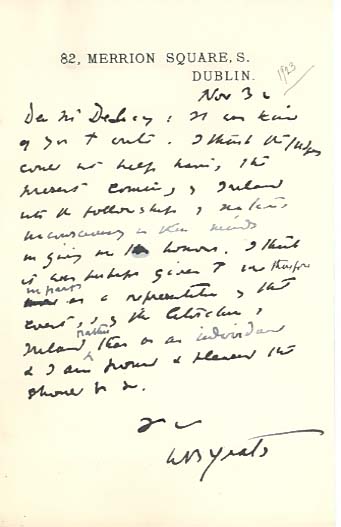 82, MERRION SQUARE, S.
DUBLIN.
1923
Nov
Dear Mr : It was kind
of you to write. I think the judges
could not help having the
present coming of Ireland
into the fellowship of nations
unconsciously in their minds
in giving me the honour. I think
it was perhaps given to me therefore
in part as a representative of that
event, & of the literature of
Ireland rather than as an individual
& I am proud & pleased that
should be so.
WB Yeats